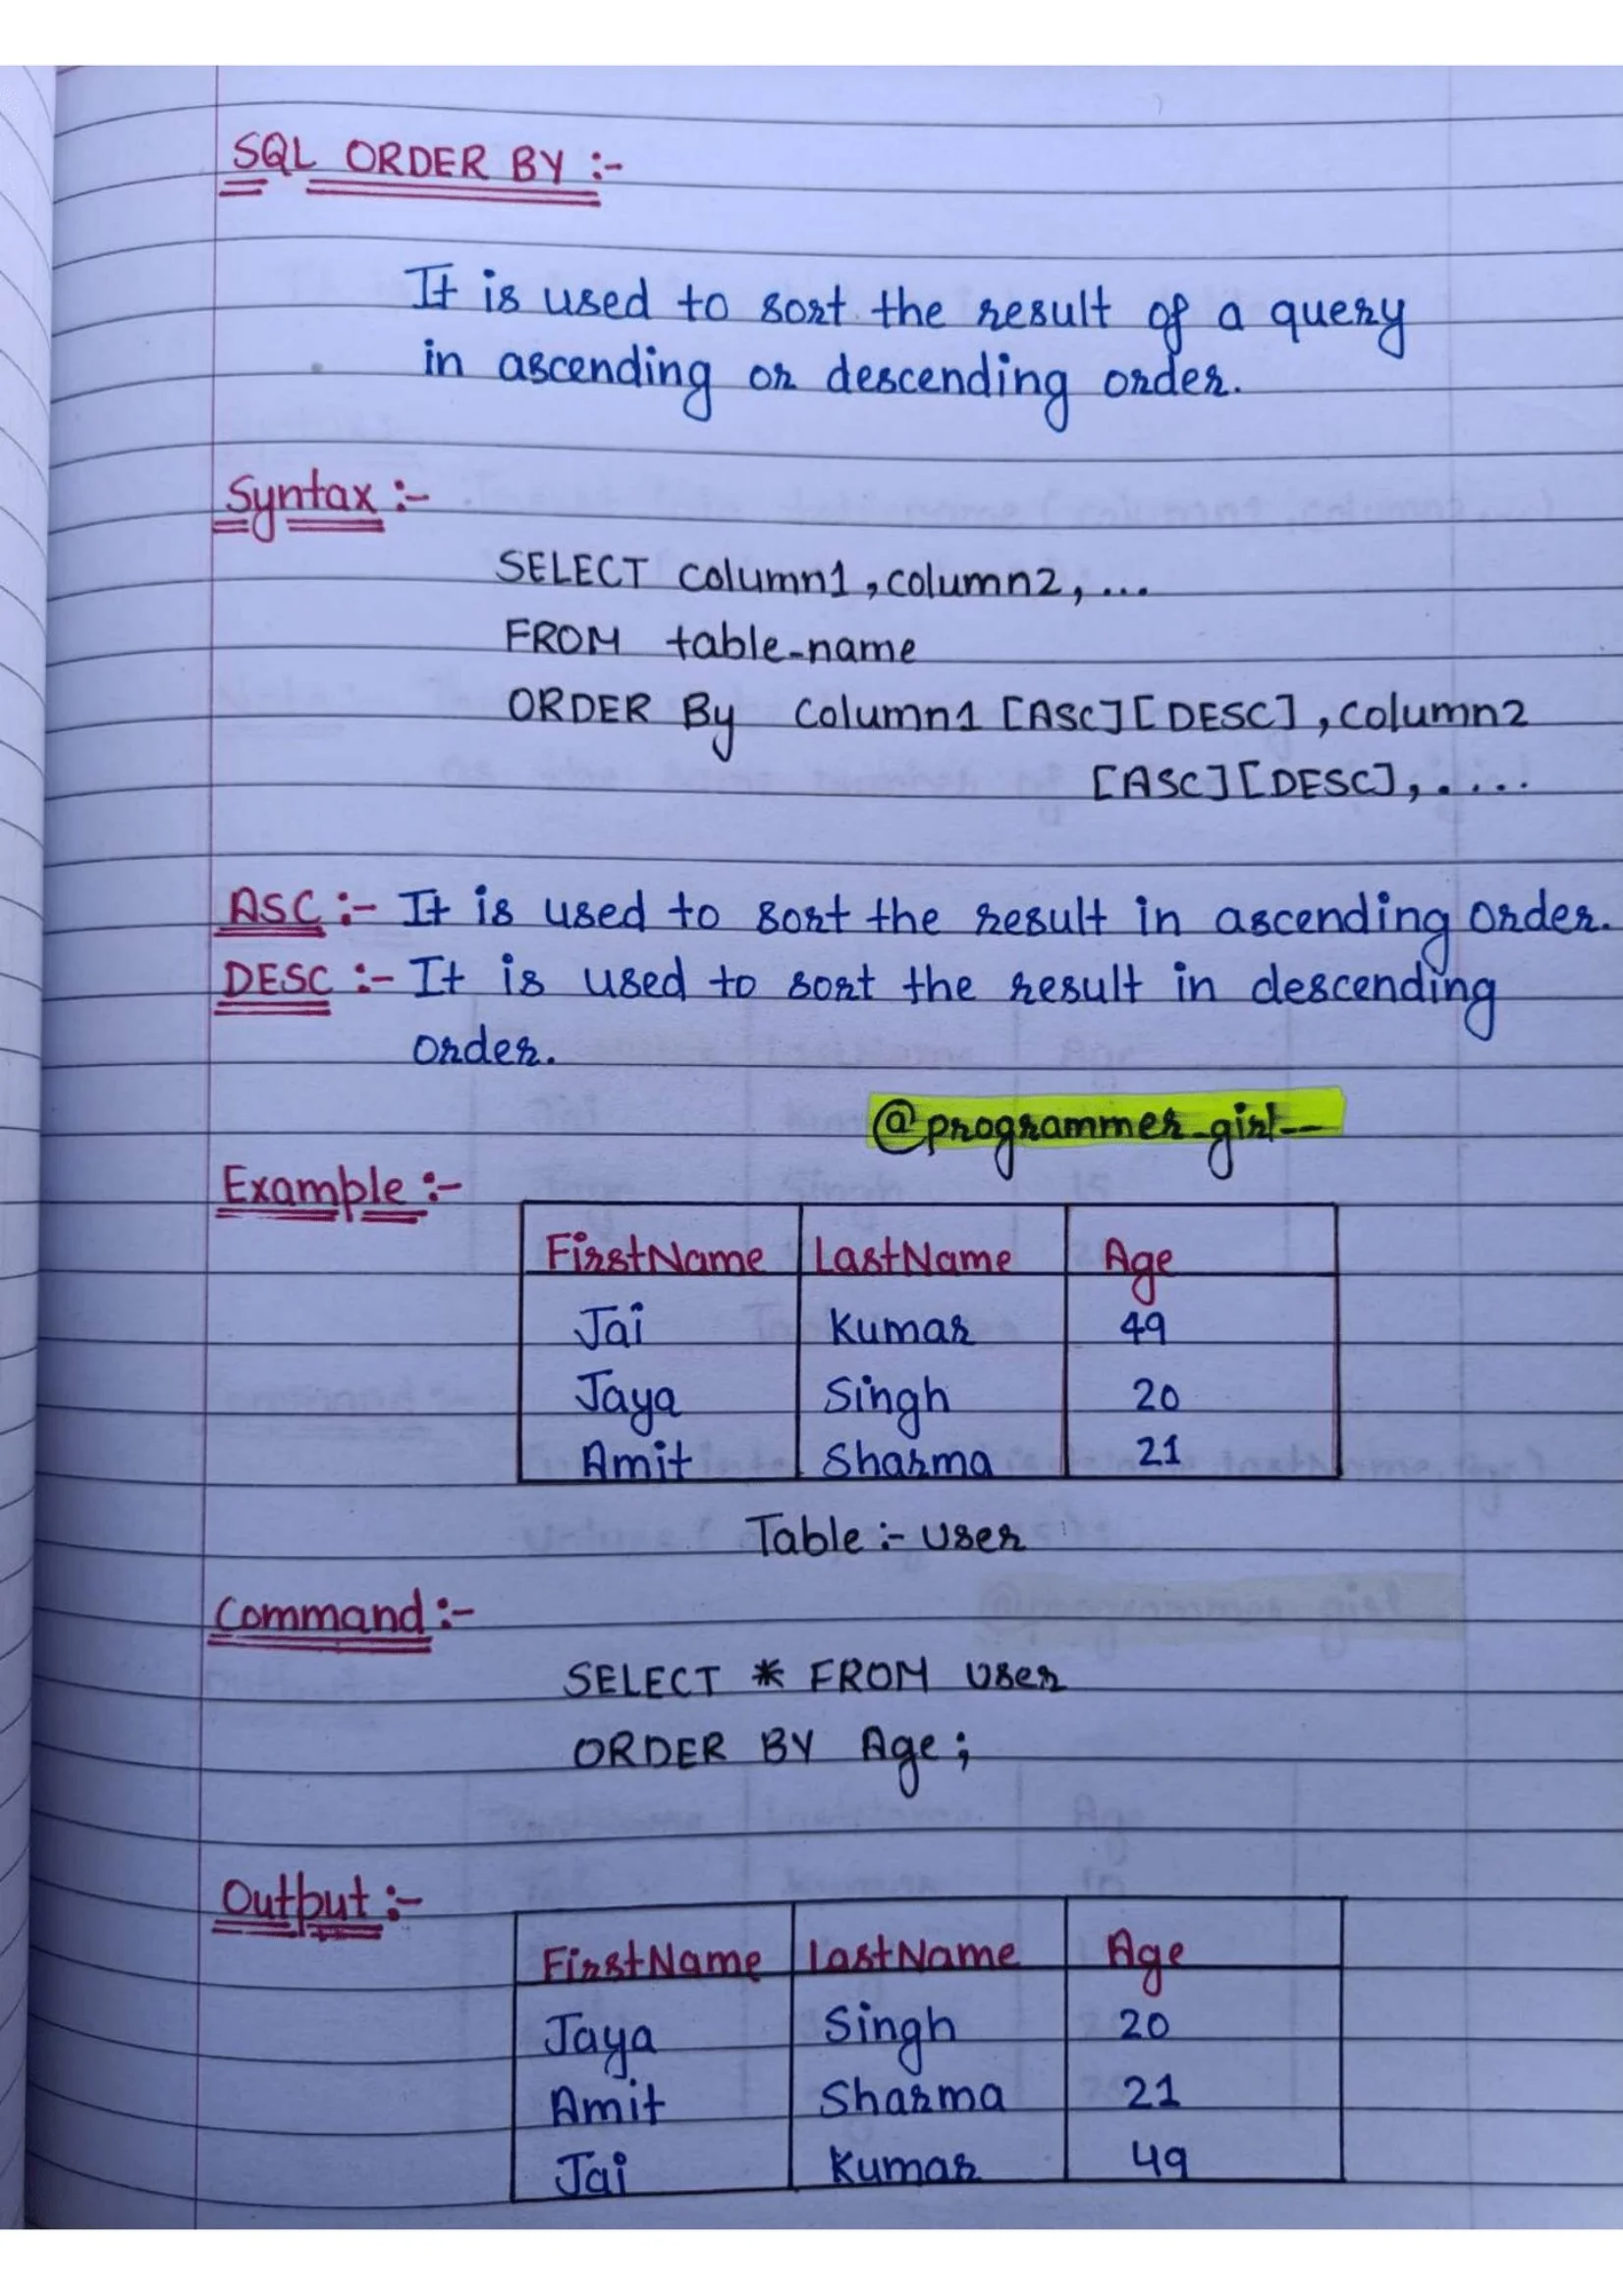 SQL ORDER BY :-
It is used to sort the result of a query
in ascending or descending order.
Syntax :-
SELECT column1, column2, ...
FROM table_name
ORDER By Column1 [ASC][DESC], column2
[ASC][DESC], .....
ASC :- It is used to sort the result in ascending order.
DESC :- It is used to sort the result in descending
order.
@programmer_girl__
Example :-
FirstName LastName Age
Jai Kumar 49
Jaya Singh 20
Amit Sharma 21
Table :- User
Command :-
SELECT * FROM User
ORDER BY Age;
Output :-
FirstName LastName Age
Jaya Singh 20
Amit Sharma 21
Jai Kumar 49